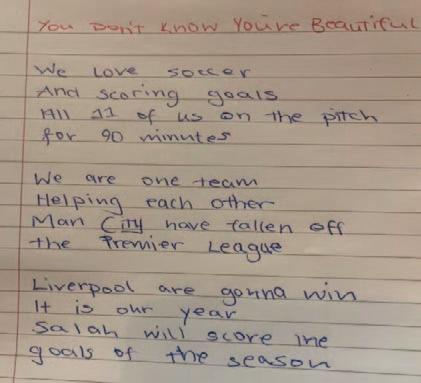 You Don't Know You're Beautiful
We love soccer
And scoring goals
All 11 of us on the pitch
for 90 minutes
We are one team
Helping each other
Man City have fallen off
the Premier League
Liverpool are gonna win
It is our year
Salah will score the
goals of the season